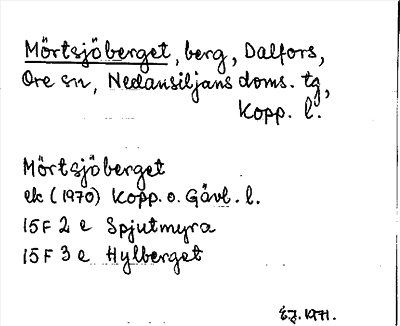 Mörtsjöberget, berg, Dalfors,
Ore sn, Nedansiljans doms. tg,
Kopp. l.
Mörtsjöberget
ek (1970) Kopp. o. Gävl. l.
15F 2 e Spjutmyra
15F 3 e Hylberget
EJ. 1971.